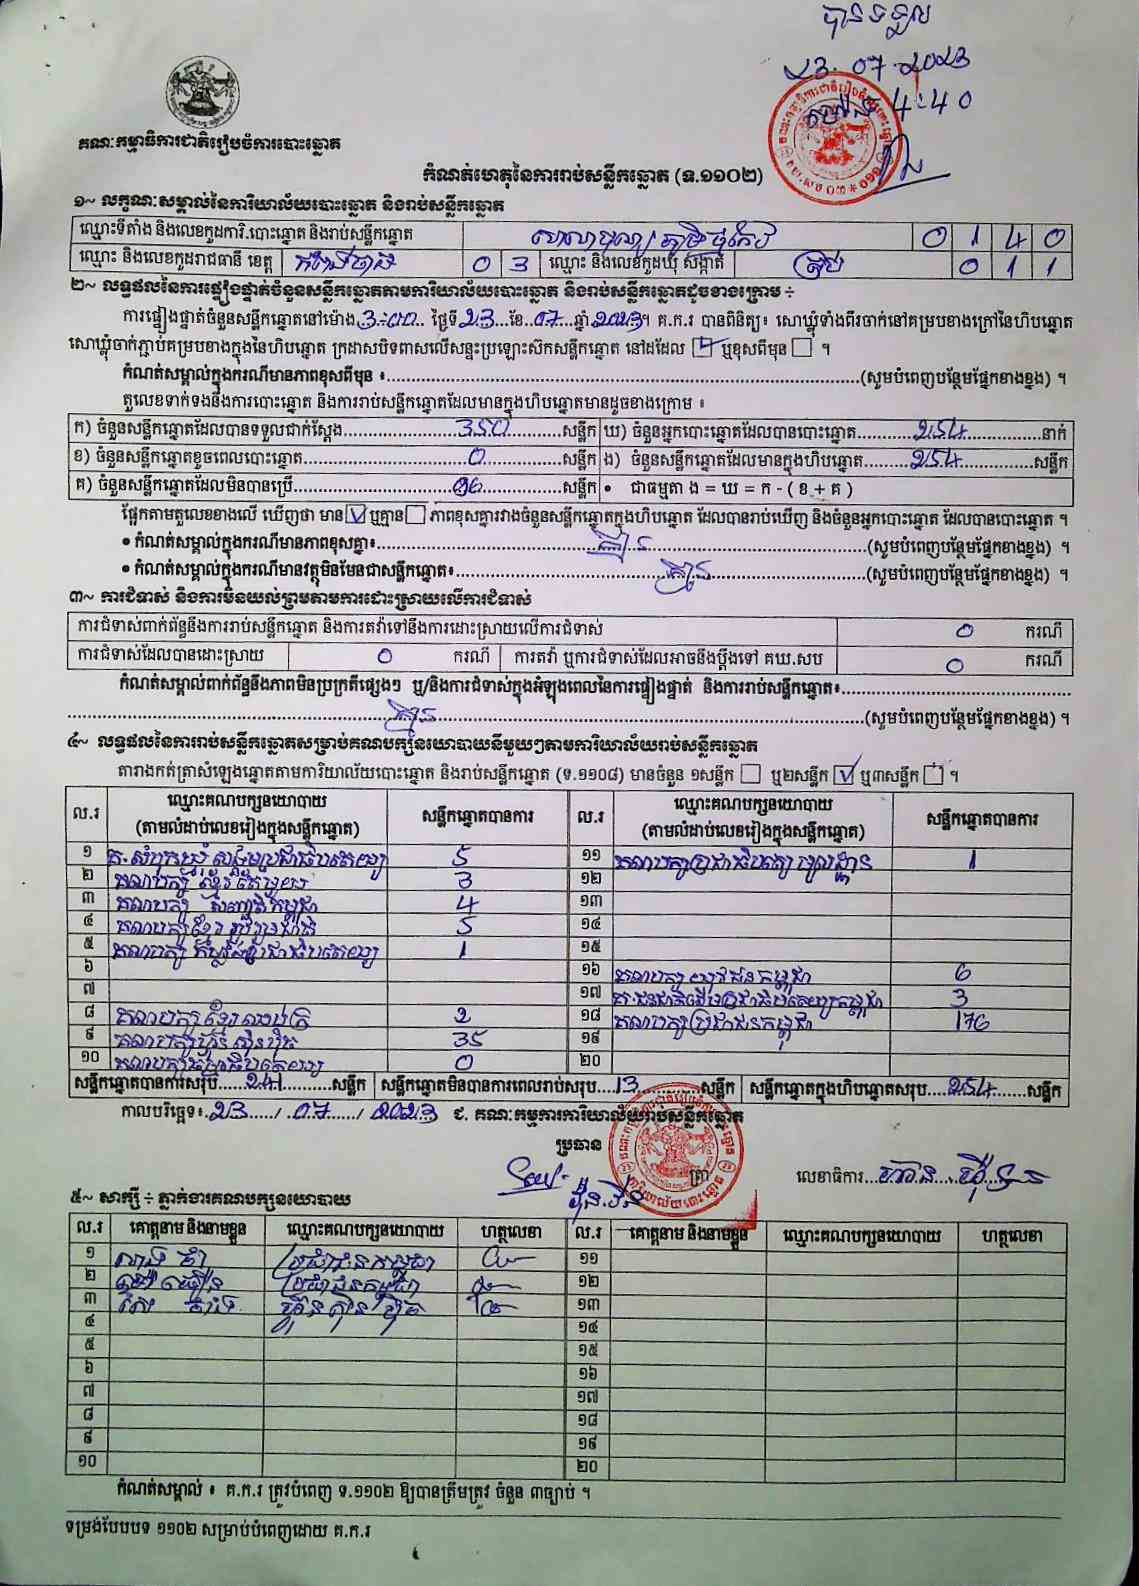 បានទទួល
23.07.2023
ម៉ោង 4:40
គណៈកម្មាធិការជាតិរៀបចំការបោះឆ្នោត
កំណត់ហេតុនៃការរាប់សន្លឹកឆ្នោត (ទ.១១០២)
១~ លក្ខណៈសម្គាល់នៃការិយាល័យបោះឆ្នោត និងរាប់សន្លឹកឆ្នោត
ឈ្មោះទីតាំង និងលេខកូដការិ.បោះឆ្នោត និងរាប់សន្លឹកឆ្នោត 0 1 4 0
ឈ្មោះ និងលេខកូដរាជធានី ខេត្ត កំពង់ចាម 0 3 ឈ្មោះ និងលេខកូដឃុំ សង្កាត់ 0 1 1
២~ លទ្ធផលនៃការផ្ទៀងផ្ទាត់ចំនួនសន្លឹកឆ្នោតតាមការិយាល័យបោះឆ្នោត និងរាប់សន្លឹកឆ្នោតដូចខាងក្រោម ÷
ការផ្ទៀងផ្ទាត់ចំនួនសន្លឹកឆ្នោតនៅម៉ោង 3:00 ថ្ងៃទី 23 ខែ 07 ឆ្នាំ 2023។ គ.ក.រ បានពិនិត្យ៖ សោឃ្លុំទាំងពីរចាក់នៅគម្របខាងក្រៅនៃហិបឆ្នោត
សោឃ្លុំចាក់ភ្ជាប់គម្របខាងក្នុងនៃហិបឆ្នោត ក្រដាសបិទពាសលើសន្ទះប្រឡោះស៊កសន្លឹកឆ្នោត នៅដដែល ☑ ឬខុសពីមុន ☐ ។
កំណត់សម្គាល់ក្នុងករណីមានភាពខុសពីមុន ៖ (សូមបំពេញបន្ថែមផ្នែកខាងខ្នង) ។
តួលេខទាក់ទងនឹងការបោះឆ្នោត និងការរាប់សន្លឹកឆ្នោតដែលមានក្នុងហិបឆ្នោតមានដូចខាងក្រោម ៖
ក) ចំនួនសន្លឹកឆ្នោតដែលបានទទួលជាក់ស្តែង 350 សន្លឹក ឃ) ចំនួនអ្នកបោះឆ្នោតដែលបានបោះឆ្នោត 254 នាក់
ខ) ចំនួនសន្លឹកឆ្នោតខូចពេលបោះឆ្នោត 0 សន្លឹក ង) ចំនួនសន្លឹកឆ្នោតដែលមានក្នុងហិបឆ្នោត 254 សន្លឹក
គ) ចំនួនសន្លឹកឆ្នោតដែលមិនបានប្រើ 96 សន្លឹក • ជាធម្មតា ង = ឃ = ក - ( ខ + គ )
ផ្អែកតាមតួលេខខាងលើ ឃើញថា មាន ☑ ឬគ្មាន ☐ ភាពខុសគ្នារវាងចំនួនសន្លឹកឆ្នោតក្នុងហិបឆ្នោត ដែលបានរាប់ឃើញ និងចំនួនអ្នកបោះឆ្នោត ដែលបានបោះឆ្នោត ។
• កំណត់សម្គាល់ក្នុងករណីមានភាពខុសគ្នា៖ គ្មាន (សូមបំពេញបន្ថែមផ្នែកខាងខ្នង) ។
• កំណត់សម្គាល់ក្នុងករណីមានវត្ថុមិនមែនជាសន្លឹកឆ្នោត៖ គ្មាន (សូមបំពេញបន្ថែមផ្នែកខាងខ្នង) ។
៣~ ការជំទាស់ និងការមិនយល់ព្រមតាមការដោះស្រាយលើការជំទាស់
ការជំទាស់ពាក់ព័ន្ធនឹងការរាប់សន្លឹកឆ្នោត និងការតវ៉ាទៅនឹងការដោះស្រាយលើការជំទាស់ 0 ករណី
ការជំទាស់ដែលបានដោះស្រាយ 0 ករណី ការតវ៉ា ឬការជំទាស់ដែលអាចនឹងប្តឹងទៅ គឃ.សប 0 ករណី
កំណត់សម្គាល់ពាក់ព័ន្ធនឹងភាពមិនប្រក្រតីផ្សេងៗ ឬ/និងការជំទាស់ក្នុងអំឡុងពេលនៃការផ្ទៀងផ្ទាត់ និងការរាប់សន្លឹកឆ្នោត៖
គ្មាន (សូមបំពេញបន្ថែមផ្នែកខាងខ្នង) ។
៤~ លទ្ធផលនៃការរាប់សន្លឹកឆ្នោតសម្រាប់គណបក្សនយោបាយនីមួយៗតាមការិយាល័យរាប់សន្លឹកឆ្នោត
តារាងកត់ត្រាសំឡេងឆ្នោតតាមការិយាល័យបោះឆ្នោត និងរាប់សន្លឹកឆ្នោត (ទ.១១០៨) មានចំនួន ១សន្លឹក ☐ ឬ២សន្លឹក ☑ ឬ៣សន្លឹក ☐ ។
ល.រ ឈ្មោះគណបក្សនយោបាយ (តាមលំដាប់លេខរៀងក្នុងសន្លឹកឆ្នោត) សន្លឹកឆ្នោតបានការ ល.រ ឈ្មោះគណបក្សនយោបាយ (តាមលំដាប់លេខរៀងក្នុងសន្លឹកឆ្នោត) សន្លឹកឆ្នោតបានការ
១ គ.សំបុកឃ្មុំសង្គមប្រជាធិបតេយ្យ 5 ១១ គណបក្សប្រជាធិបតេយ្យមូលដ្ឋាន 1
២ គណបក្ស ខ្មែរតែមួយ 3 ១២
៣ គណបក្ស សញ្ជាតិកម្ពុជា 4 ១៣
៤ គណបក្សខ្មែររួបរួមជាតិ 5 ១៤
៥ គណបក្ស កម្លាំងប្រជាធិបតេយ្យ 1 ១៥
៦ ១៦ គណបក្ស យុវជនកម្ពុជា 6
៧ ១៧ គ.ជនជាតិដើមប្រជាធិបតេយ្យកម្ពុជា 3
៨ គណបក្សខ្មែរឈប់ក្រ 2 ១៨ គណបក្សប្រជាជនកម្ពុជា 176
៩ គណបក្សហ៊្វុនស៊ិនប៉ិច 35 ១៩
១០ គណបក្សធម្មាធិបតេយ្យ 0 ២០
សន្លឹកឆ្នោតបានការសរុប 241 សន្លឹក សន្លឹកឆ្នោតមិនបានការពេលរាប់សរុប 13 សន្លឹក សន្លឹកឆ្នោតក្នុងហិបឆ្នោតសរុប 254 សន្លឹក
កាលបរិច្ឆេទ៖ 23 / 07 / 2023 ជ. គណៈកម្មការការិយាល័យរាប់សន្លឹកឆ្នោត
ប្រធាន
ត្រា លេខាធិការ
៥~ សាក្សី ÷ ភ្នាក់ងារគណបក្សនយោបាយ
ល.រ គោត្តនាម និងនាមខ្លួន ឈ្មោះគណបក្សនយោបាយ ហត្ថលេខា ល.រ គោត្តនាម និងនាមខ្លួន ឈ្មោះគណបក្សនយោបាយ ហត្ថលេខា
១ ប្រជាជនកម្ពុជា ១១
២ ប្រជាជនកម្ពុជា ១២
៣ ហ៊្វុនស៊ិនប៉ិច ១៣
៤ ១៤
៥ ១៥
៦ ១៦
៧ ១៧
៨ ១៨
៩ ១៩
១០ ២០
កំណត់សម្គាល់ ៖ គ.ក.រ ត្រូវបំពេញ ទ.១១០២ ឱ្យបានត្រឹមត្រូវ ចំនួន ៣ច្បាប់ ។
ទម្រង់បែបបទ ១១០២ សម្រាប់បំពេញដោយ គ.ក.រ